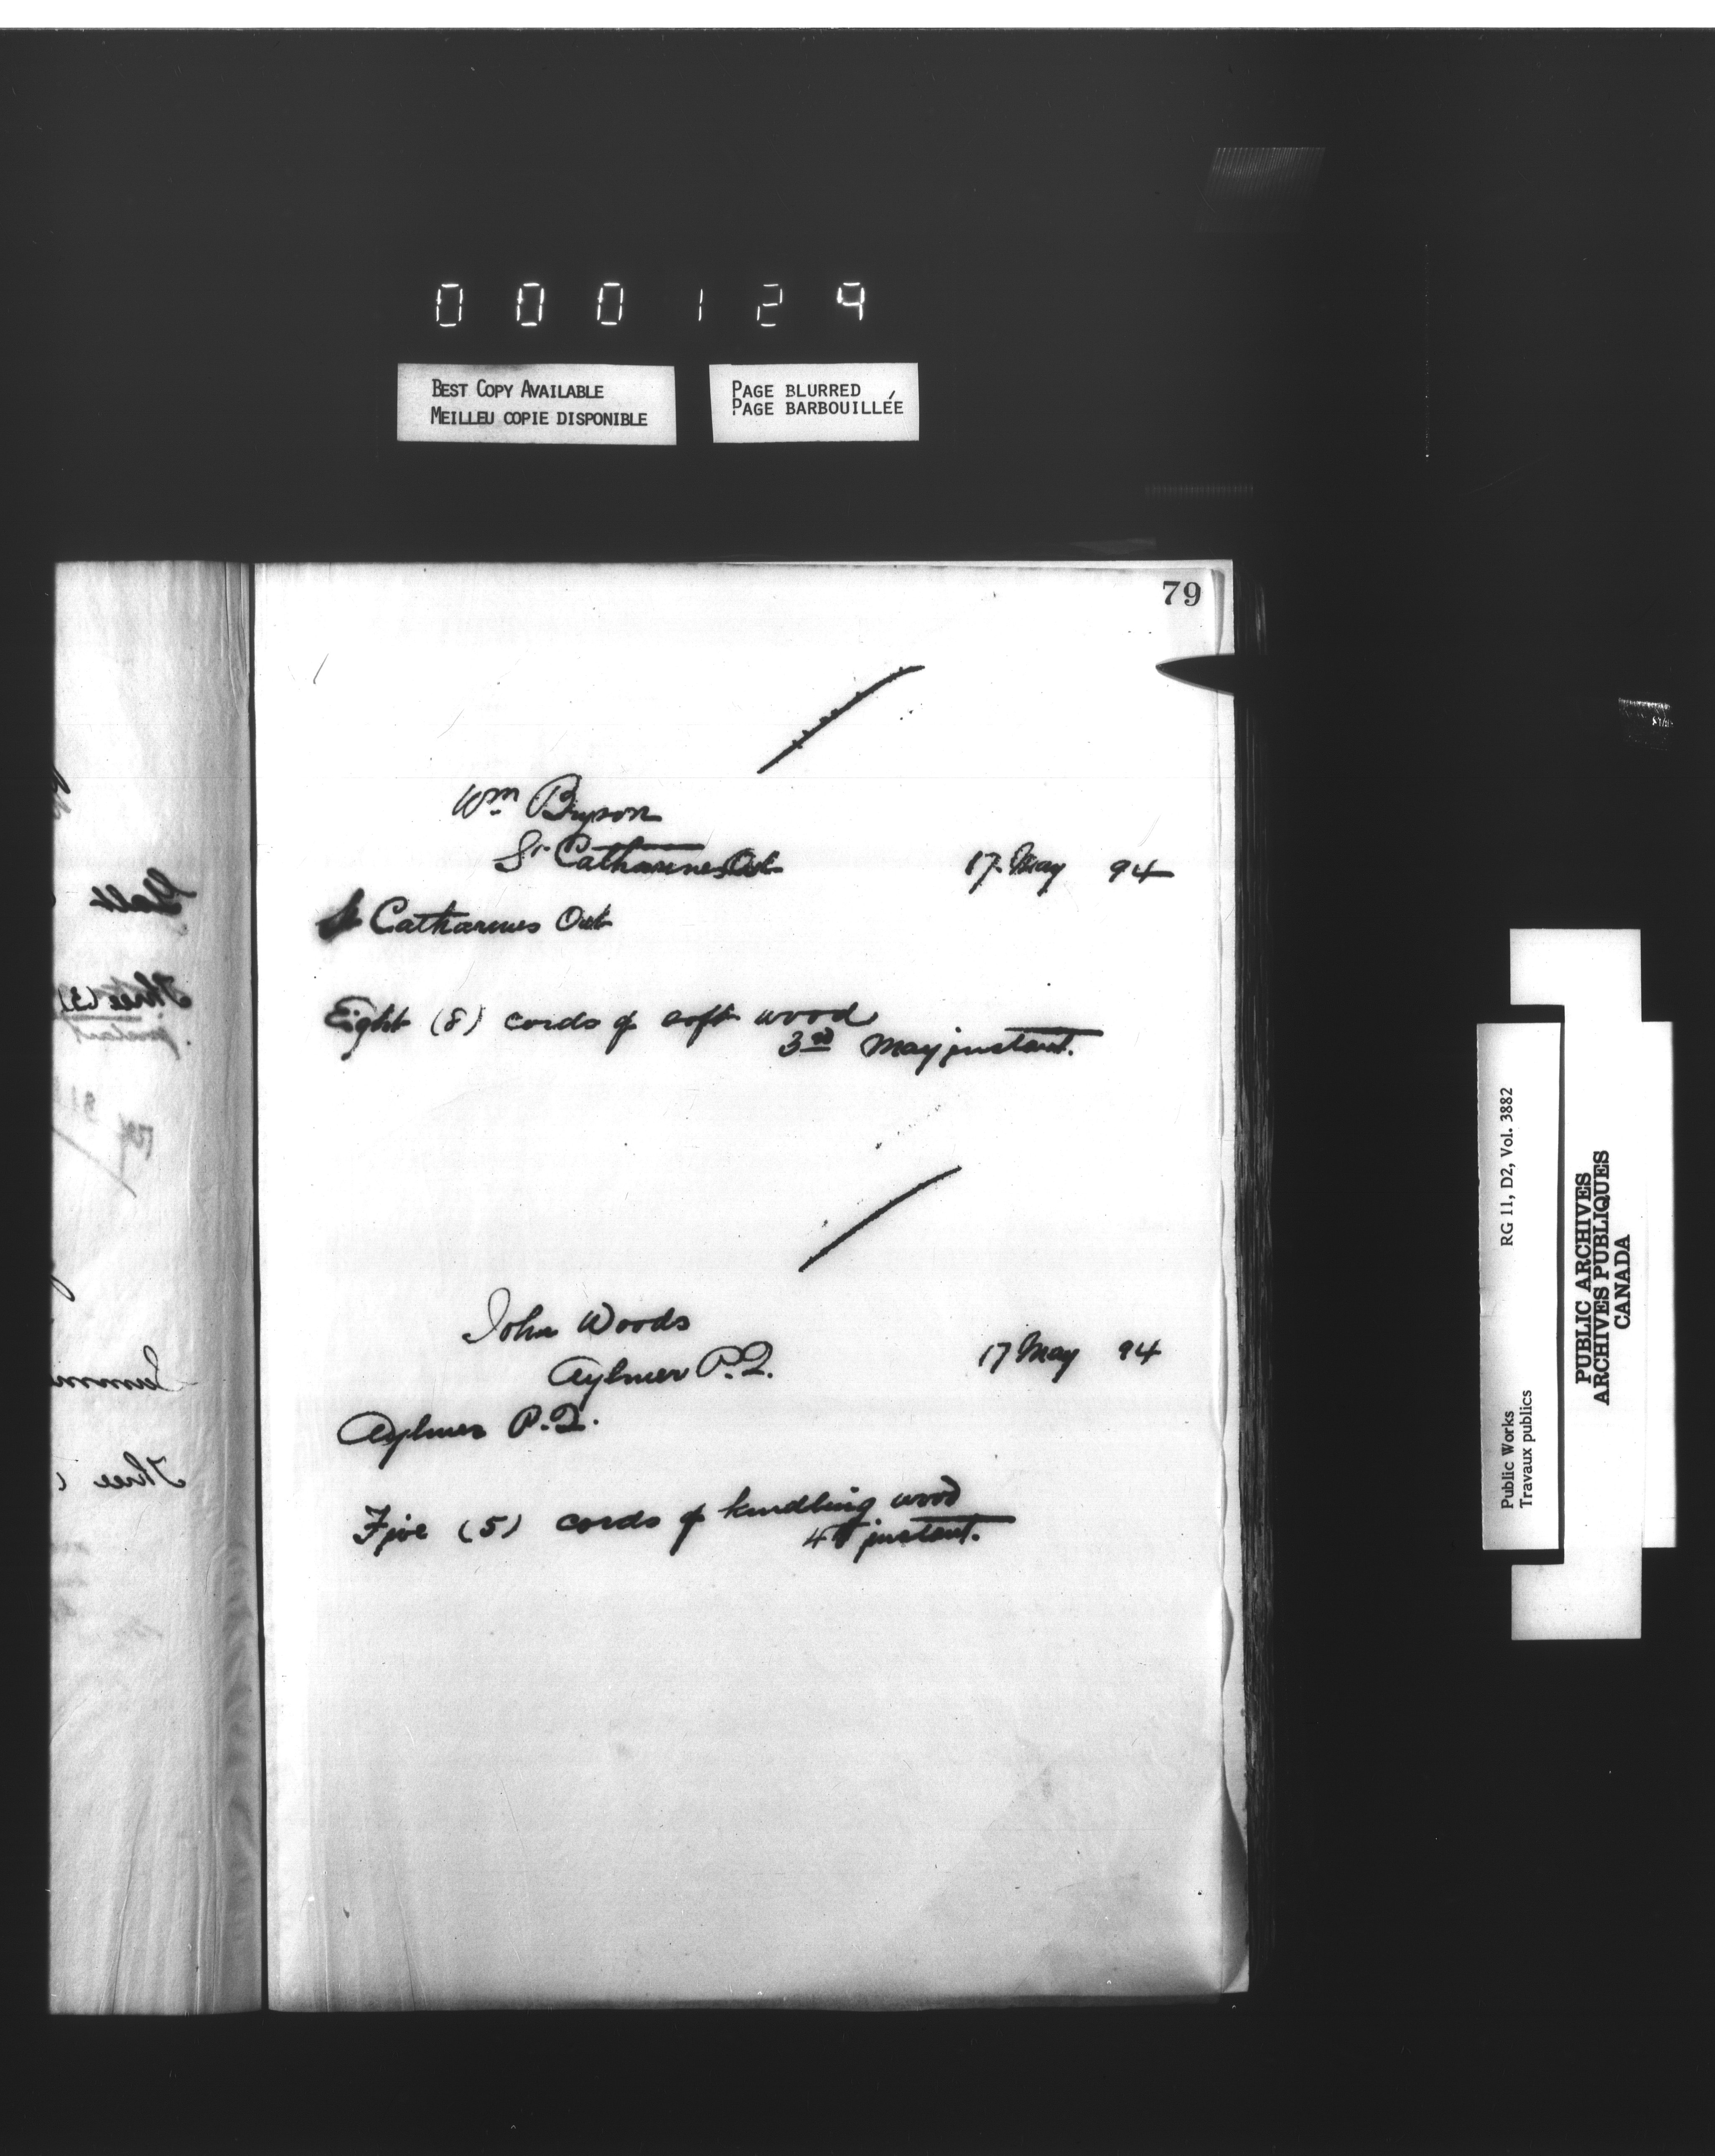 000129
BEST COPY AVAILABLE
MEILLEU COPIE DISPONIBLE
PAGE BLURRED
PAGE BARBOUILLÉE
79
Wm Bryson
St Catharines Ont
17 May 94
St Catharines Ont
Eight (8) cords of soft wood
3rd May instant.
John Woods
Aylmer P.Q.
17 May 94
Aylmer P.Q.
Five (5) cords of kindling wood
4th instant.
Galt
Three (3)
instant
Three (
Public Works
Travaux publics
RG 11, D2, Vol. 3882
PUBLIC ARCHIVES
ARCHIVES PUBLIQUES
CANADA